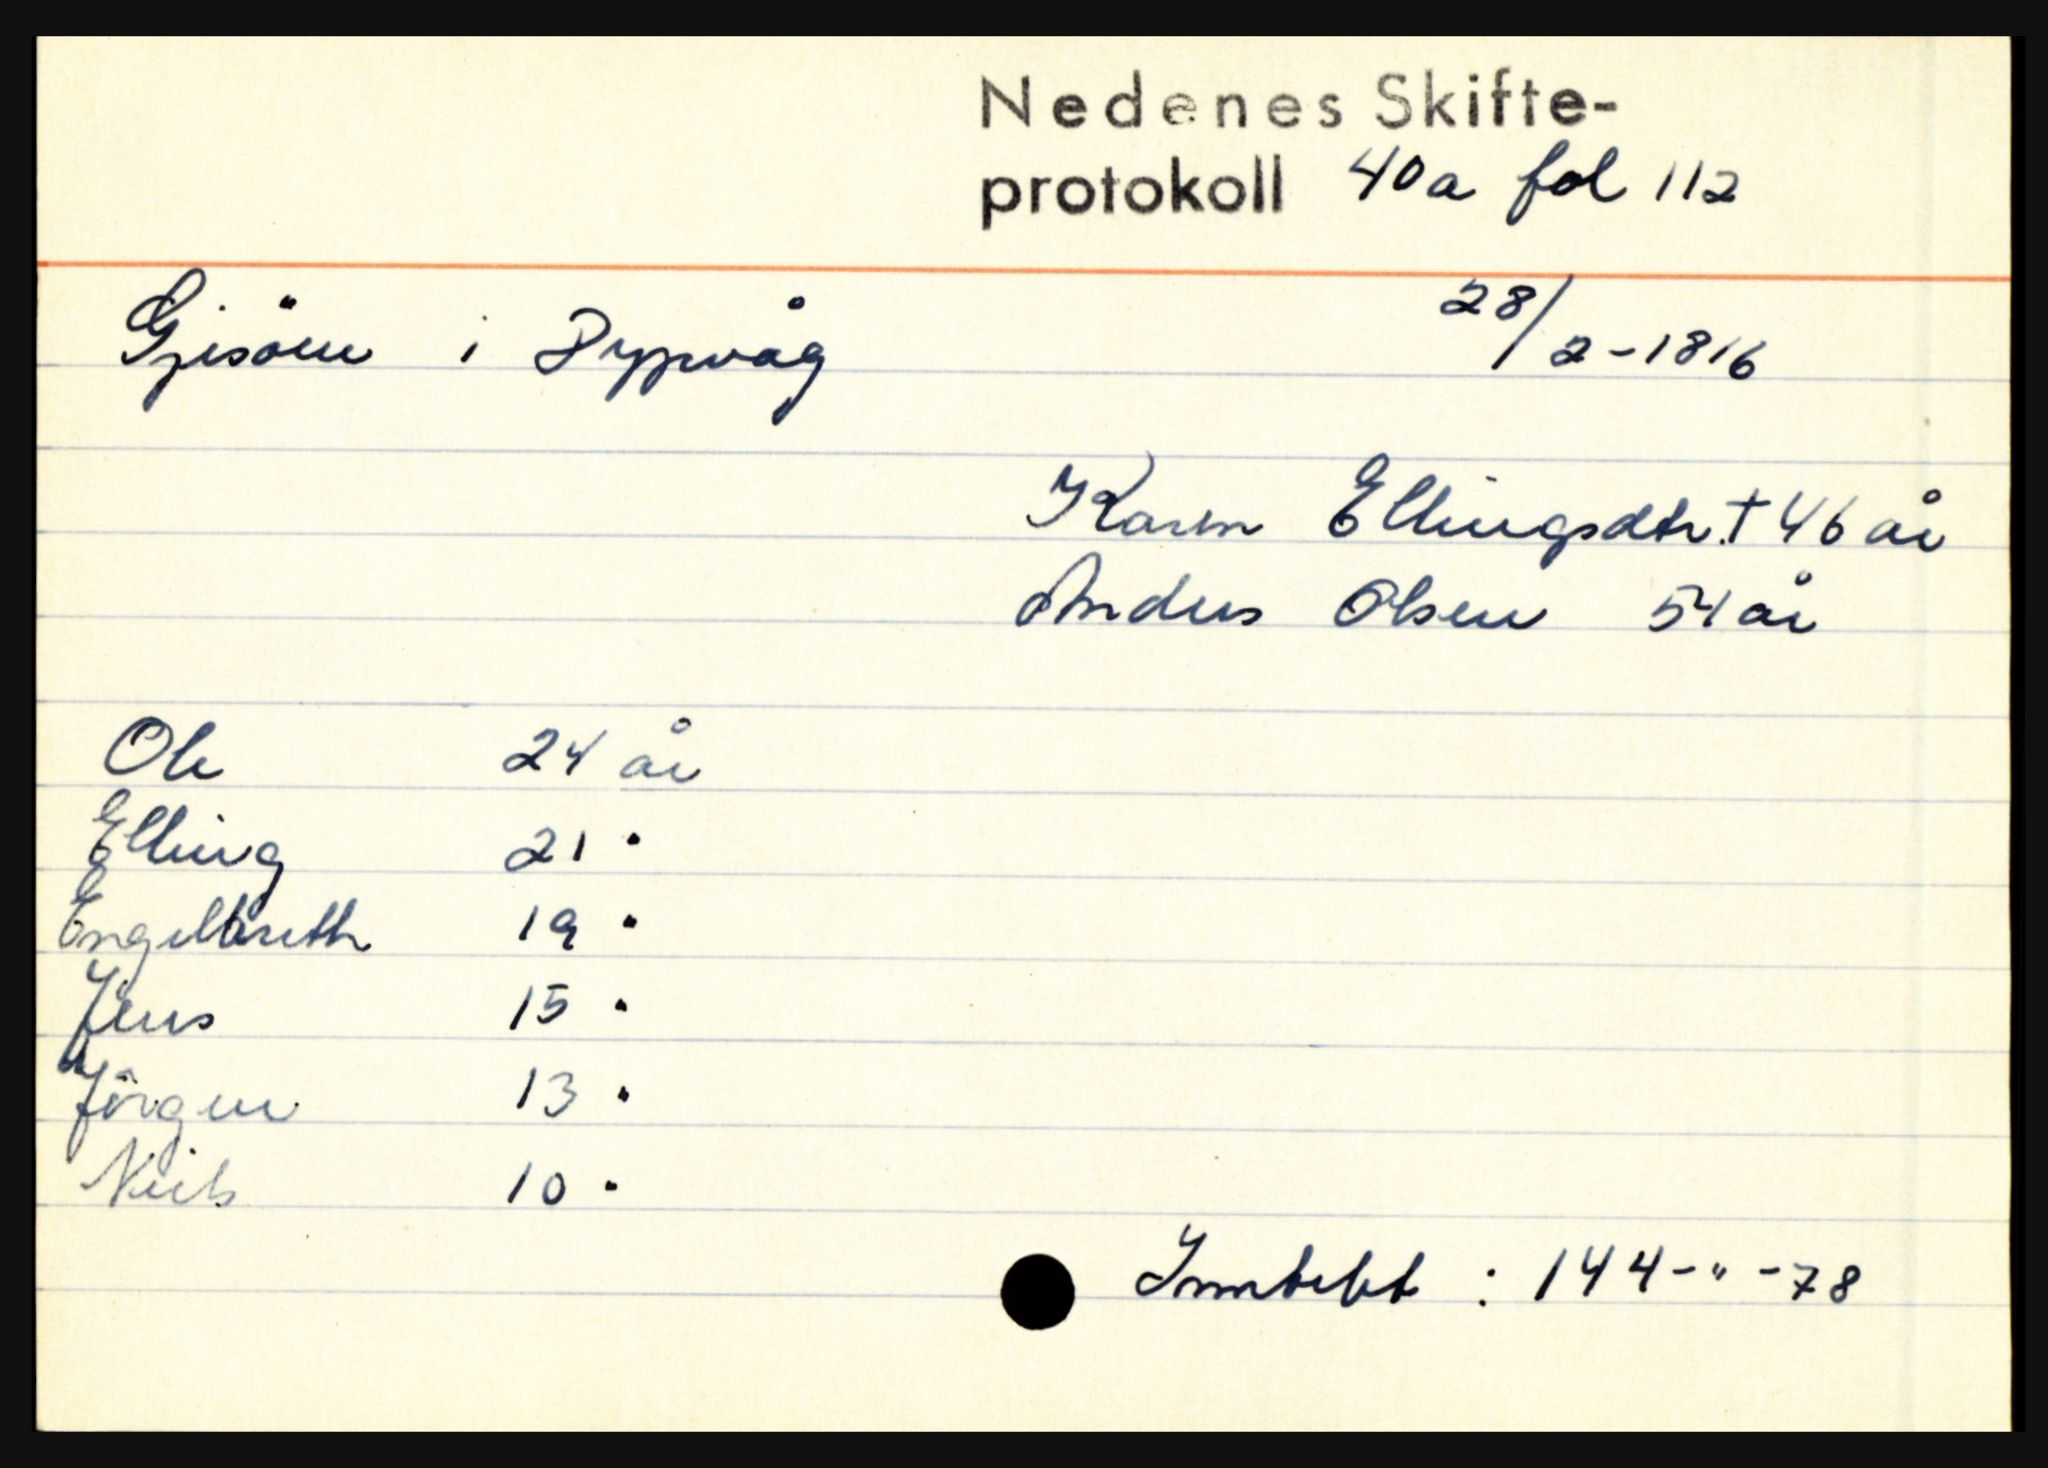 Nedenes Skifte-
protokoll 40a fol 112
Gjisöen i Dypvåg 28/2-1816
Karen Ellingsdtr. † 46 år
Anders Olsen 54 år
Ole 24 år
Elling 21 "
Engelbreth 19 "
Jens 15 "
Jörgen 13 "
Neils 10 "
Inntekt : 144-"-78